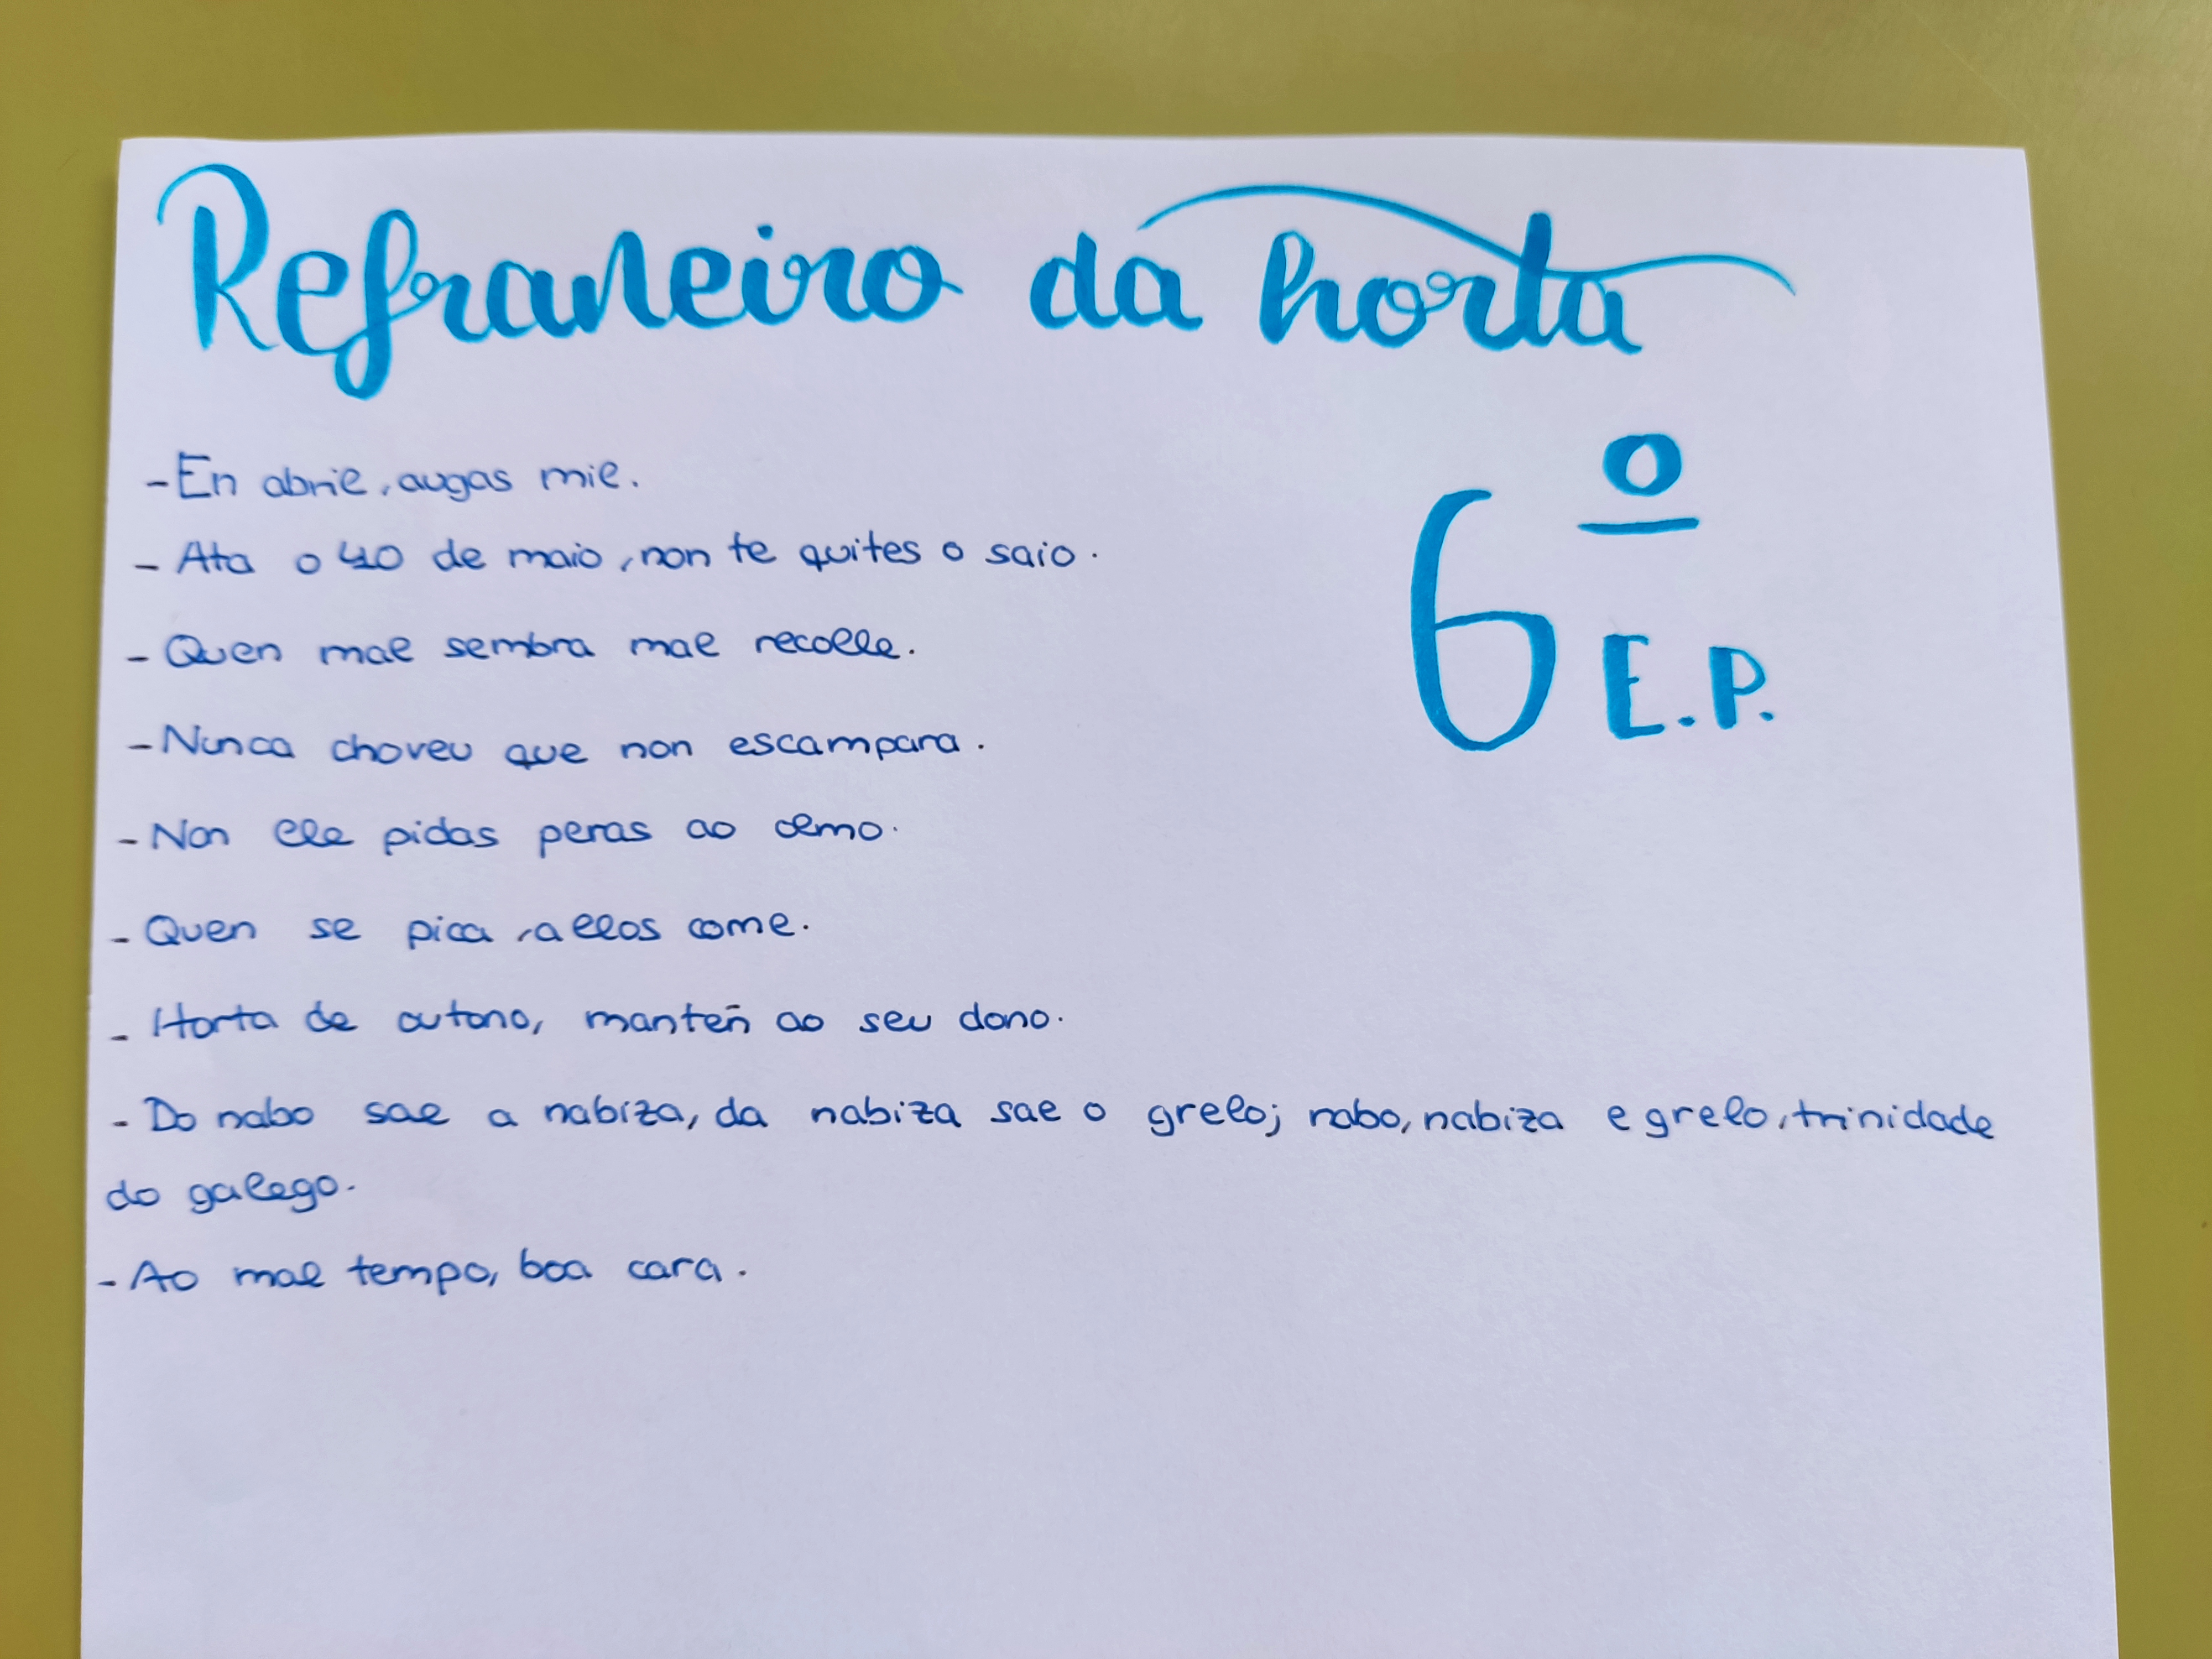 Refraneiro da horta
6º E.P.
- En abril, augas mil.
- Ata o 40 de maio, non te quites o saio.
- Quen mal sembra mal recolle.
- Nunca choveu que non escampara.
- Non lle pidas peras ao olmo.
- Quen se pica, allos come.
- Horta de outono, manteñ ao seu dono.
- Do nabo sae a nabiza, da nabiza sae o grelo; nabo, nabiza e grelo, trinidade
do galego.
- Ao mal tempo, boa cara.